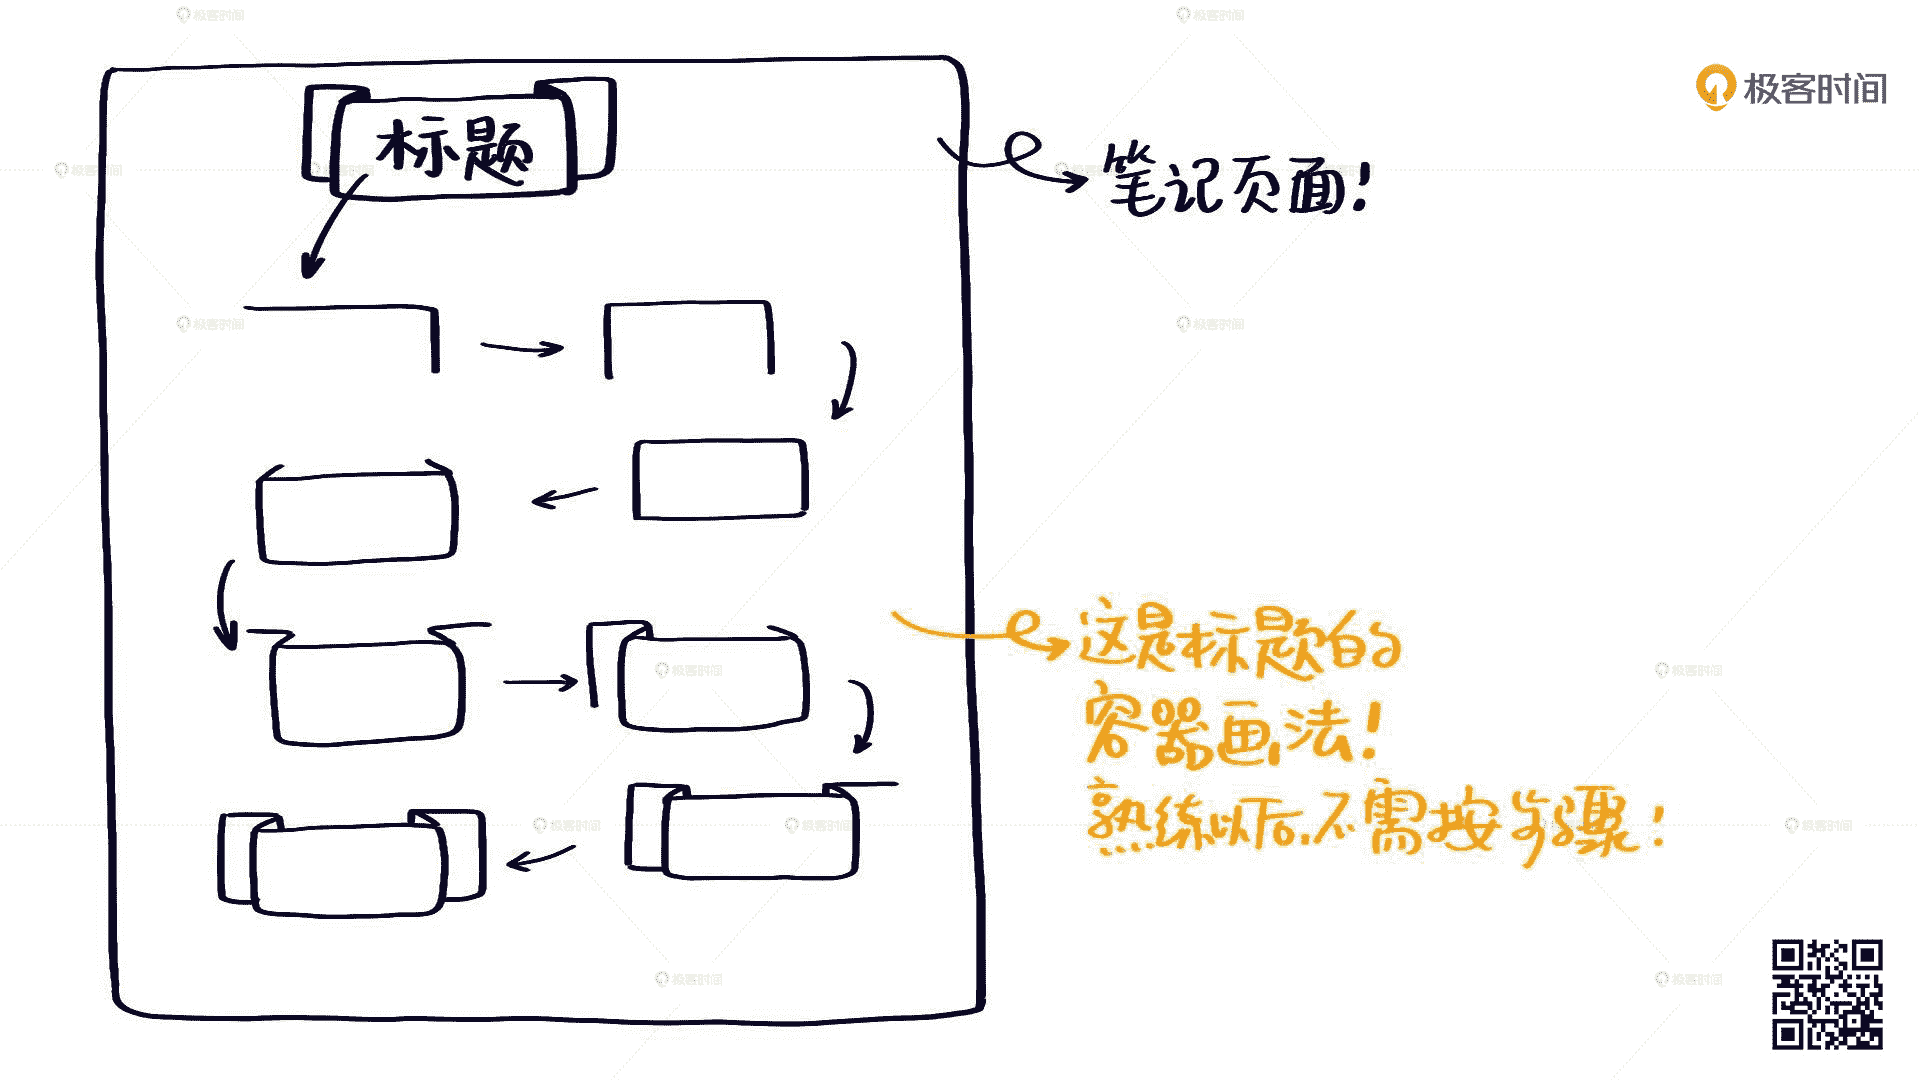 极客时间
标题
笔记页面!
这是标题的
容器画法!
熟练以后,不需按步骤!